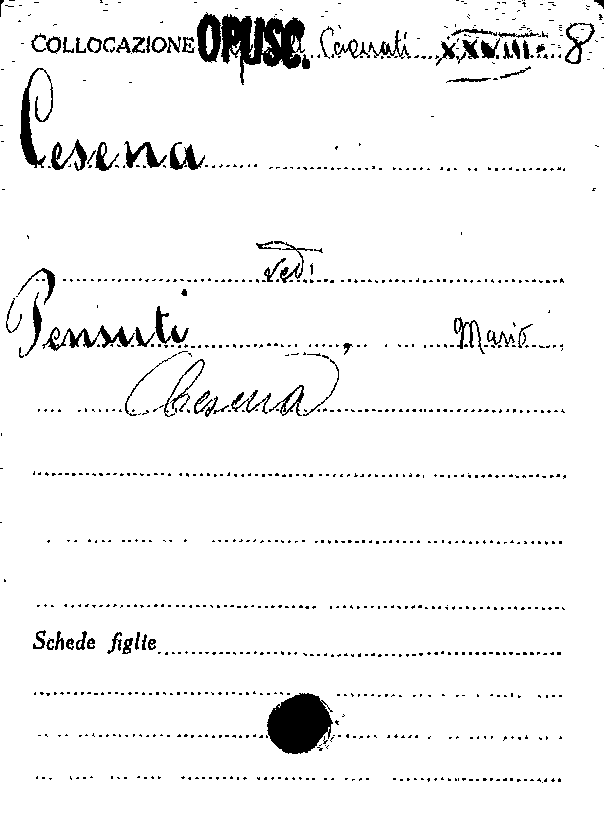 COLLOCAZIONE OPUSC. Cagnati XXVIII. 8
Cesena
Vedi
Pensuti, Mario
Cesena
Schede figlie